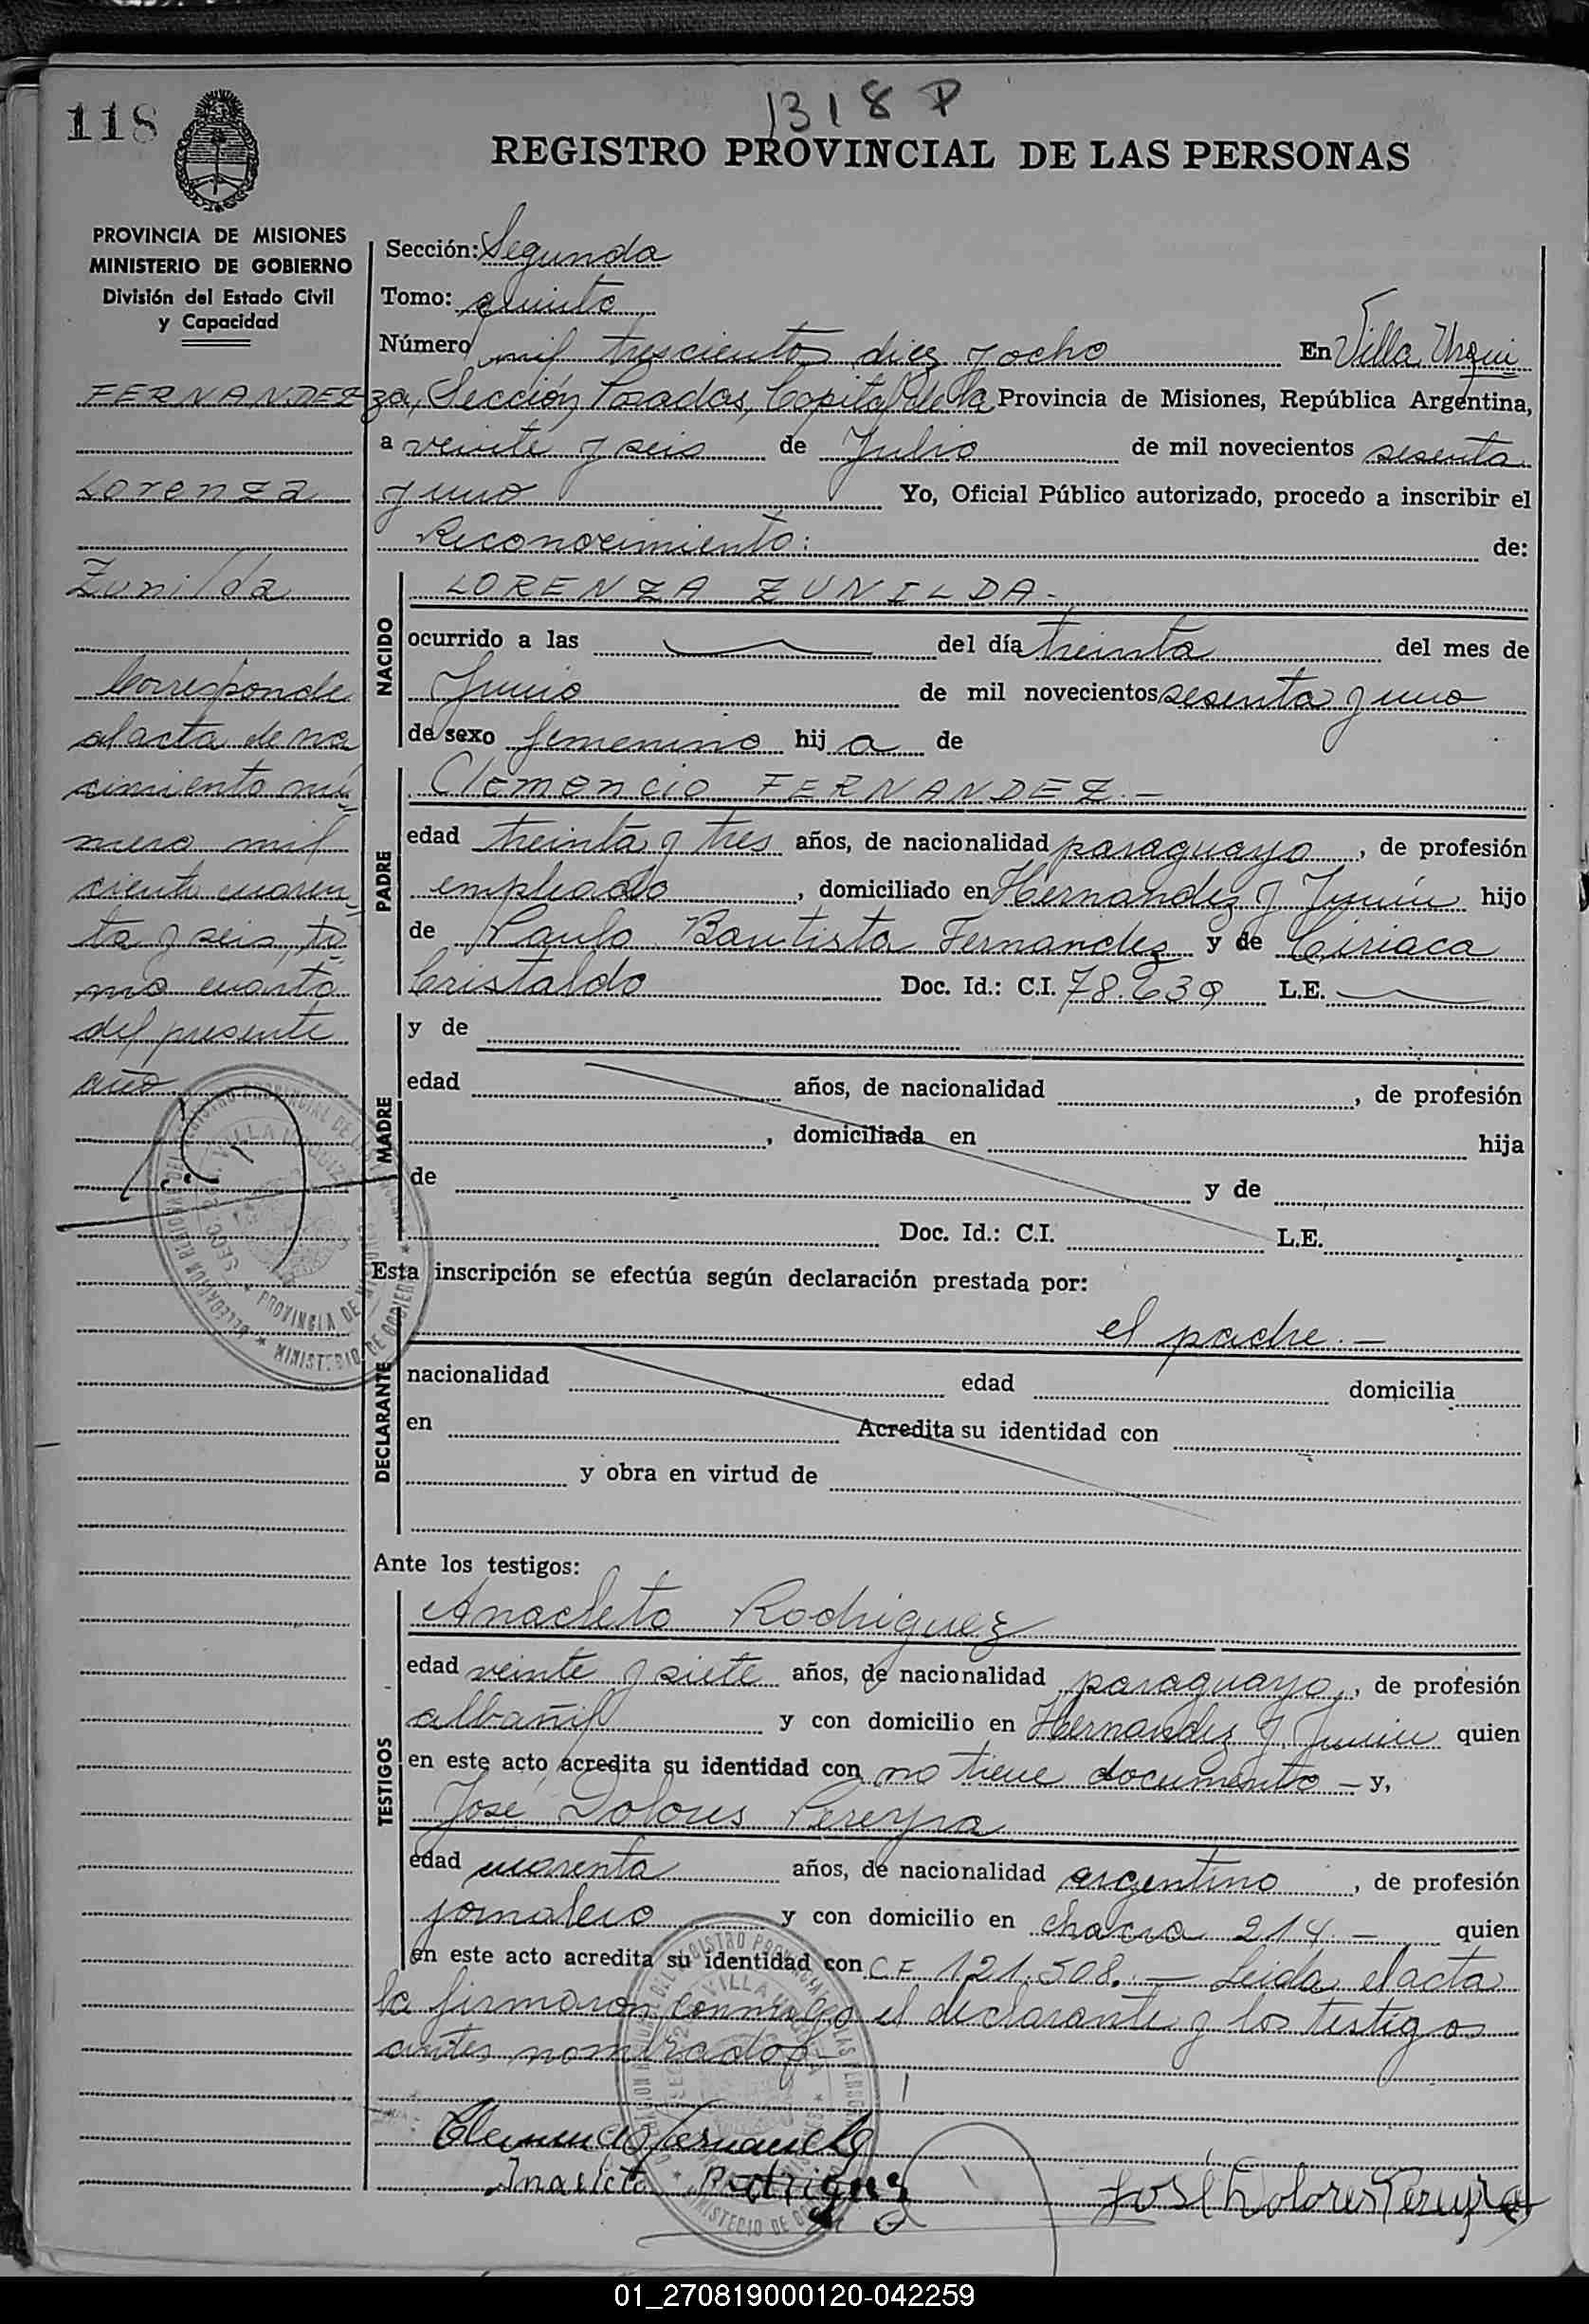 1318 P
118
REGISTRO PROVINCIAL DE LAS PERSONAS
PROVINCIA DE MISIONES
MINISTERIO DE GOBIERNO
División del Estado Civil
y Capacidad
FERNANDEZ
Lorenza
Zunilda
Corresponde
al acta de na
cimiento nú-
mero mil
ciento cuaren-
ta y seis, to-
mo cuarto
del presente
año
Sección: Segunda
Tomo: quinto
Número mil trescientos diez y ocho En Villa Urqui
za, Sección Posadas, Capital de la Provincia de Misiones, República Argentina,
a veinte y seis de Julio de mil novecientos sesenta
y uno Yo, Oficial Público autorizado, procedo a inscribir el
Reconocimiento: de:
NACIDO
LORENZA ZUNILDA.-
ocurrido a las del día treinta del mes de
Junio de mil novecientos sesenta y uno
de sexo femenino hij a de
PADRE
Clemencio FERNANDEZ.-
edad treinta y tres años, de nacionalidad paraguayo, de profesión
empleado, domiciliado en Hernandez y Junín hijo
de Paulo Bautista Fernandez y de Ciriaca
Cristaldo Doc. Id.: C.I. 78.639 L.E.
MADRE
y de
edad años, de nacionalidad , de profesión
, domiciliada en hija
de y de
Doc. Id.: C.I. L.E.
Esta inscripción se efectúa según declaración prestada por:
el padre.-
DECLARANTE
nacionalidad edad domicilia
en Acredita su identidad con
y obra en virtud de
Ante los testigos:
TESTIGOS
Anacleto Rodriguez
edad veinte y siete años, de nacionalidad paraguayo, de profesión
albañil y con domicilio en Hernandez y Junin quien
en este acto acredita su identidad con no tiene documento - y,
Jose Dolores Pereyra
edad cuarenta años, de nacionalidad argentino, de profesión
jornalero y con domicilio en chacra 214.- quien
en este acto acredita su identidad con C F 121.508.- Leida el acta
la firmaron conmigo el declarante y los testigos
antes nombrados
Clemencio Fernandez
Anacleto Rodriguez
José Dolores Pereyra
01_270819000120-042259